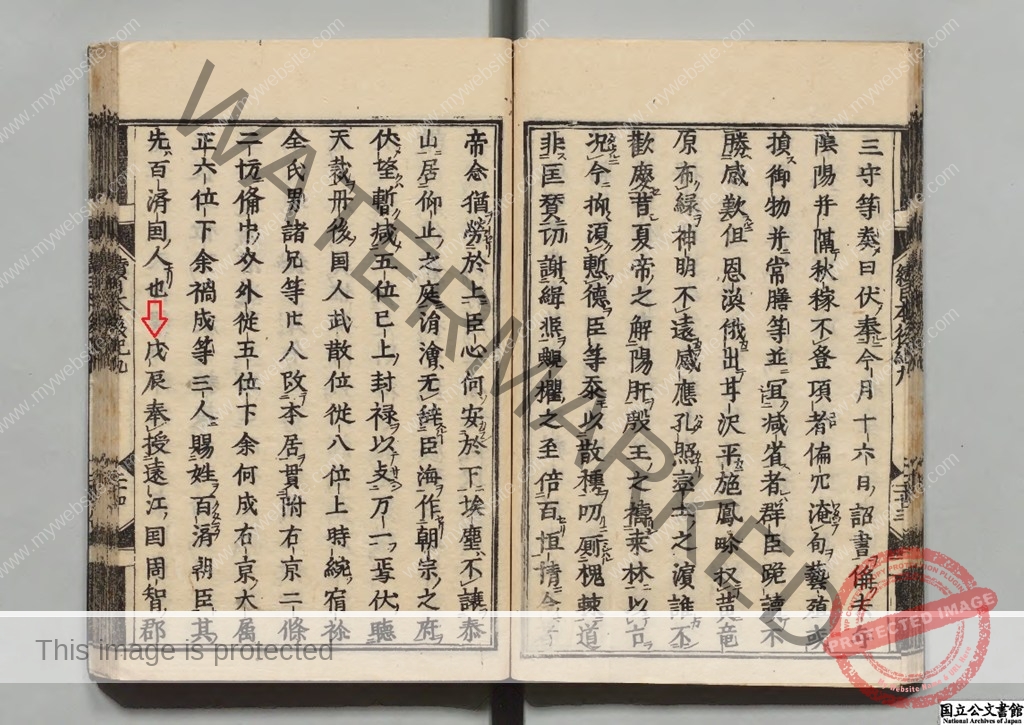 三守等奏曰伏奉今月十六日詔書
陰陽并隔秋稼不登項者偏冗淹旬藝殖或
損御物并常膳等並宜减省者群臣跪讀不
勝感歎但恩渙俄出耳沢平施鳳畝権竜
原布緑神明不遠感應孔照率土之濱誰不
歓慶昔夏帝之解陽肝殷王之禱来林以古
況今抑須慙徳臣等忝以散種叨厠槐棘道
非匡賛切謝緝熈覶懼之至倍百恒情今
帝念猶労於上臣心何安於下埃塵不譲泰
山居仰止之庭涓澮无辞臣海作朝宗之府
伏望暫减五位已上封禄以支万一焉伏聴
天裁丹後国人武散位従八位上時統宿祢
全氏男諸兄等七人改本居貫附右京二條
二坊備中介外従五位下余何成右京大属
正六位下余禍成等三人賜姓百済朝臣其
先百済国人也
戊辰奉授遠江国周智郡
續日本後紀九
續日本後紀九
WATERMARKED
www.mywebsite.com
This image is protected
PROTECTED IMAGE
国立公文書館
National Archives of Japan